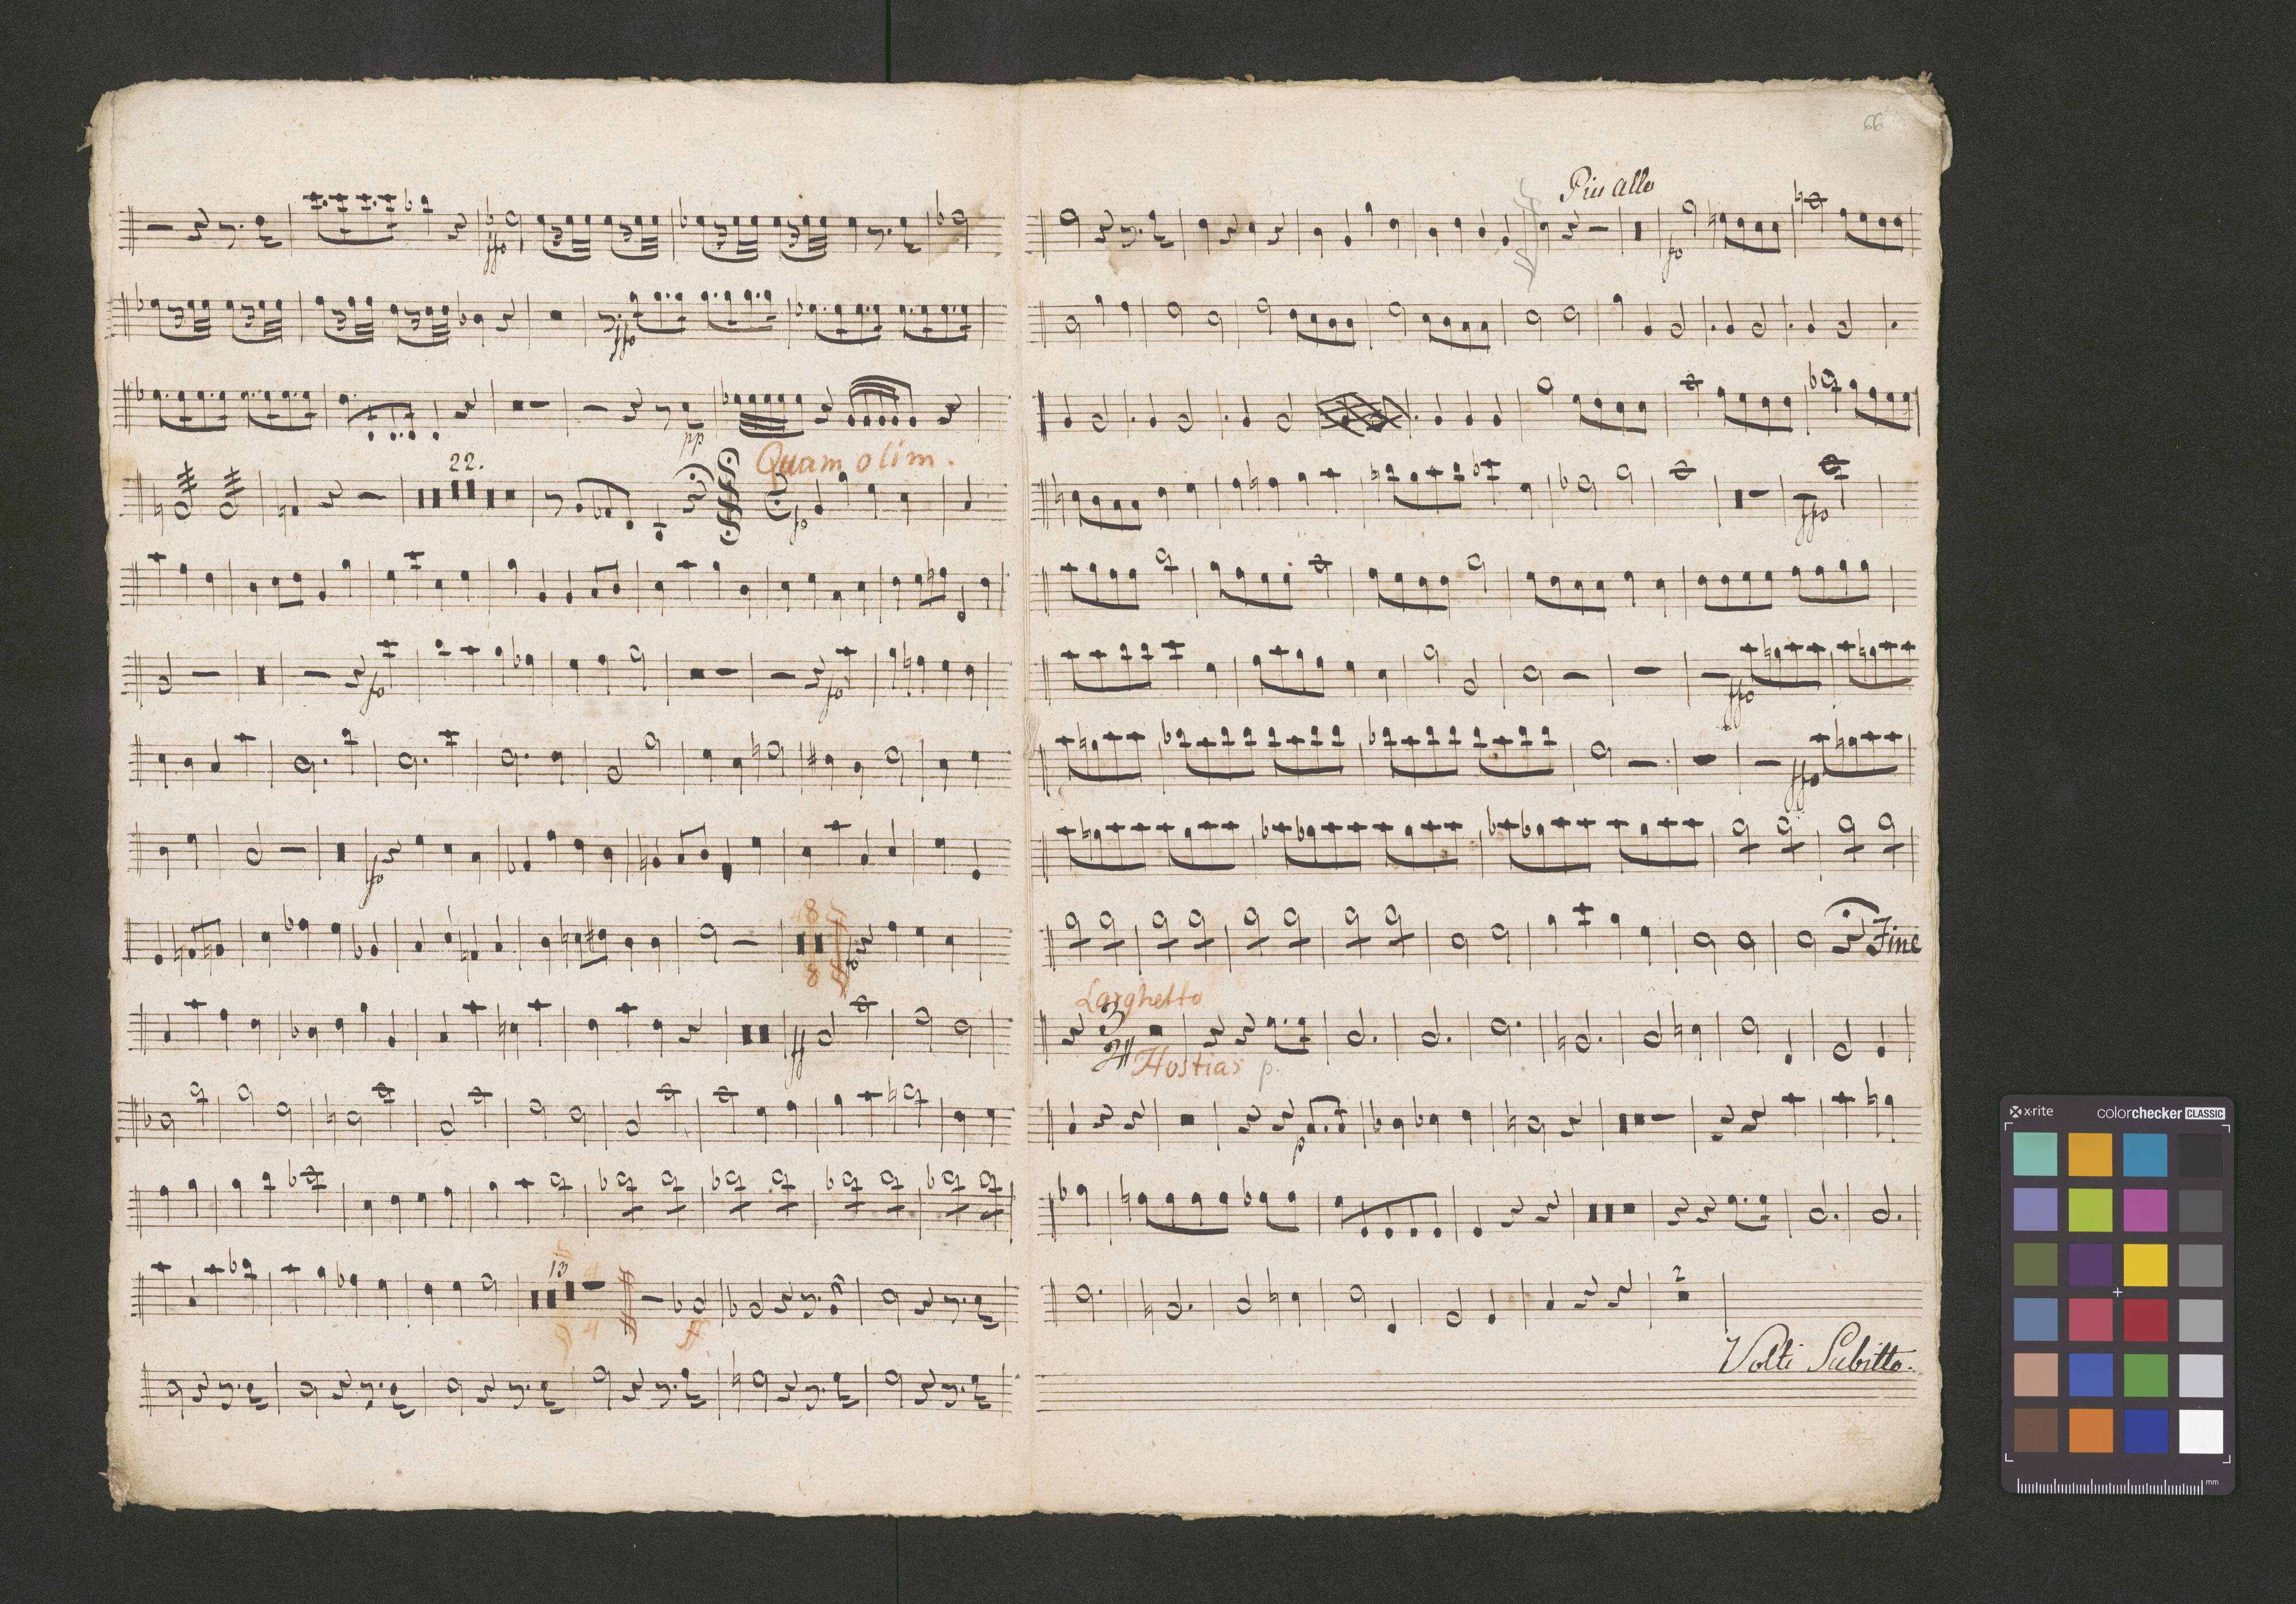 ffo
ffo
pp
Quam olim.
22.
fo
fo
fo
fo
8
8
fo
ff
13
4
ff
66
Piu allo
fo
ffo
ffo
ffo
Fine
Larghetto
3
Hostias p.
p
2
Volti Subitto.
x-rite
colorchecker CLASSIC
mm